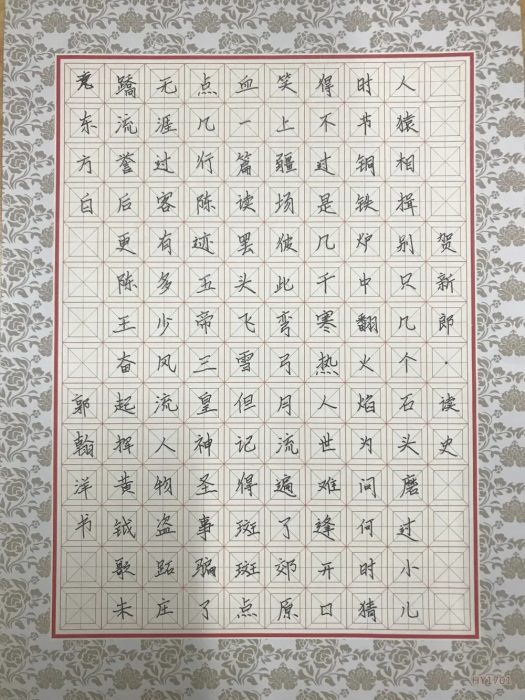 贺新郎·读史
人猿相揖别只几个石头磨过小儿
时节铜铁炉中翻火焰为问何时猜
得不过是几千寒热人世难逢开口
笑上疆场彼此弯弓月流遍了郊原
血一篇读罢头飞雪但记得斑斑点
点几行陈迹五帝三皇神圣事骗了
无涯过客有多少风流人物盗跖庄
蹻流誉后更陈王奋起挥黄钺歌未
竟东方白
郭翰洋书
HY1701